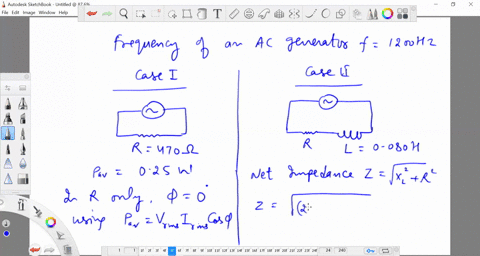 Autodesk SketchBook - Untitled @ 87.6%
File Edit Image Window Help
Frequency of an AC generator f = 1200Hz
Case I
R = 470Ω
Pav = 0.25 W
In R only, Φ = 0°
using Pav = Vrms Irms Cosφ
Case II
R L = 0.080H
Net Impedance Z = √XL² + R²
Z = √(2